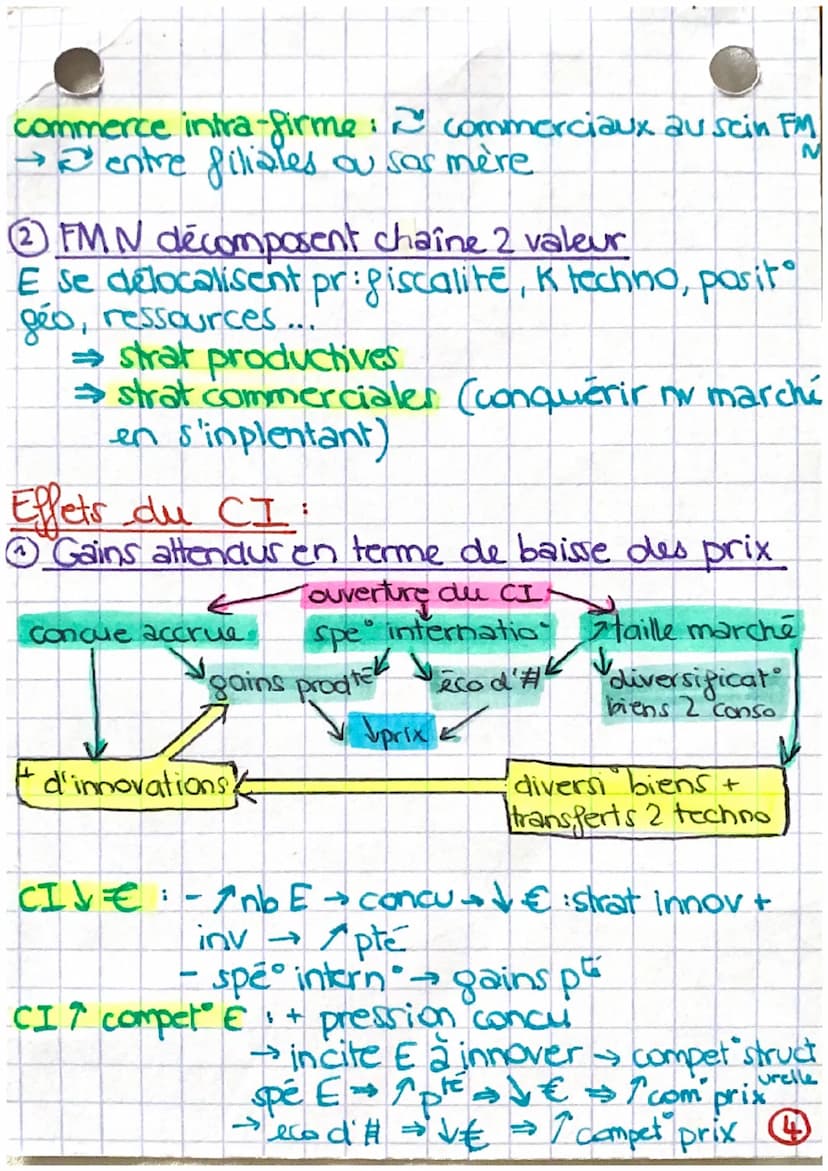 commerce intra-firme : ⇄ commerciaux au sein FMN
→ ⇄ entre filiales ou sos mère
② FMN décomposent chaîne 2 valeur
E se délocalisent pr : fiscalité, K techno, posit°
géo, ressources...
⇒ strat productives
⇒ strat commerciales (conquérir nv marché
en s'inplentant)
Effets du CI :
① Gains attendus en terme de baisse des prix
ouverture du CI
concue accrue spe° internatio° ↗taille marché
gains prodté éco d'# diversificat°
biens 2 conso
↓prix
+ d'innovations diversi° biens +
transferts 2 techno
CI ↓ € : - ↗nb E → concu → ↓ € : strat innov +
inv → ↗ pté
- spé° intern° → gains pté
CI ↑ compet° E : + pression concu
→ incite E à innover → compet° structurelle
spé E ⇒ ↗pté ⇒ ↓ € ⇒ ↑com° prix
→ eco d'# ⇒ ↓€ ⇒ ↑ compet° prix ④